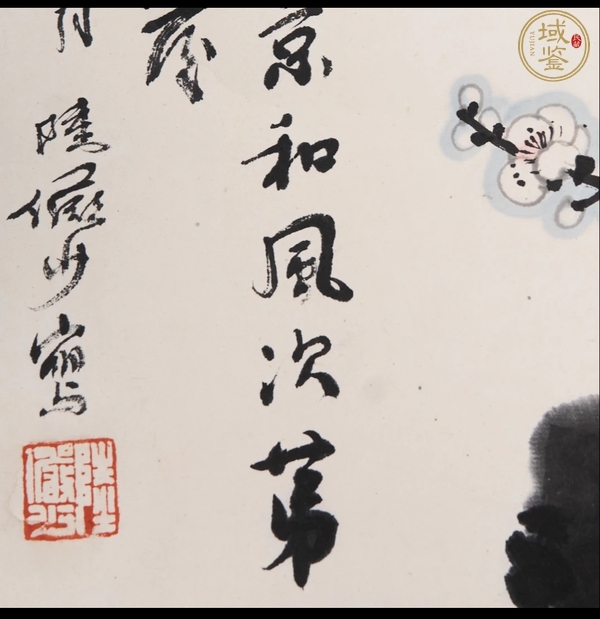 京和風次第
月
陸儼少寫
陸儼少
域鉴
YUJIAN